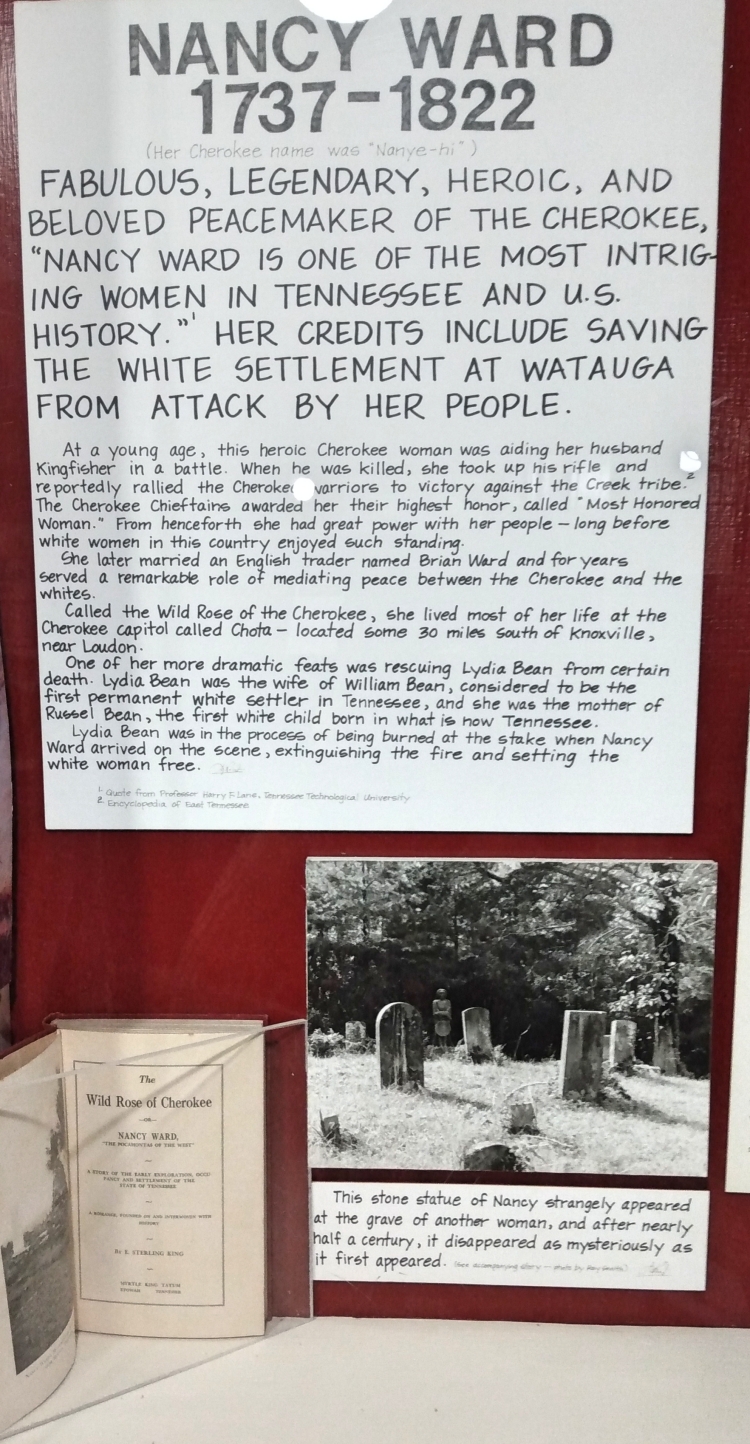 NANCY WARD
1737-1822
(Her Cherokee name was "Nanye-hi")
FABULOUS, LEGENDARY, HEROIC, AND
BELOVED PEACEMAKER OF THE CHEROKEE,
"NANCY WARD IS ONE OF THE MOST INTRIG-
ING WOMEN IN TENNESSEE AND U.S.
HISTORY."¹ HER CREDITS INCLUDE SAVING
THE WHITE SETTLEMENT AT WATAUGA
FROM ATTACK BY HER PEOPLE.
At a young age, this heroic Cherokee woman was aiding her husband
Kingfisher in a battle. When he was killed, she took up his rifle and
reportedly rallied the Cherokee warriors to victory against the Creek tribe.²
The Cherokee Chieftains awarded her their highest honor, called "Most Honored
Woman." From henceforth she had great power with her people - long before
white women in this country enjoyed such standing.
She later married an English trader named Brian Ward and for years
served a remarkable role of mediating peace between the Cherokee and the
whites.
Called the Wild Rose of the Cherokee, she lived most of her life at the
Cherokee capitol called Chota - located some 30 miles south of Knoxville,
near Loudon.
One of her more dramatic feats was rescuing Lydia Bean from certain
death. Lydia Bean was the wife of William Bean, considered to be the
first permanent white settler in Tennessee, and she was the mother of
Russel Bean, the first white child born in what is now Tennessee.
Lydia Bean was in the process of being burned at the stake when Nancy
Ward arrived on the scene, extinguishing the fire and setting the
white woman free.
1. Quote from Professor Harry F. Lane, Tennessee Technological University
2. Encyclopedia of East Tennessee
The
Wild Rose of Cherokee
—OR—
NANCY WARD,
"THE POCAHONTAS OF THE WEST"
A STORY OF THE EARLY EXPLORATION, OCCU-
PANCY AND SETTLEMENT OF THE
STATE OF TENNESSEE
A ROMANCE, FOUNDED ON AND INTERWOVEN WITH
HISTORY
By E. STERLING KING
MYRTLE KING TATUM
This stone statue of Nancy strangely appeared
at the grave of another woman, and after nearly
half a century, it disappeared as mysteriously as
it first appeared. (See accompanying story - photo by